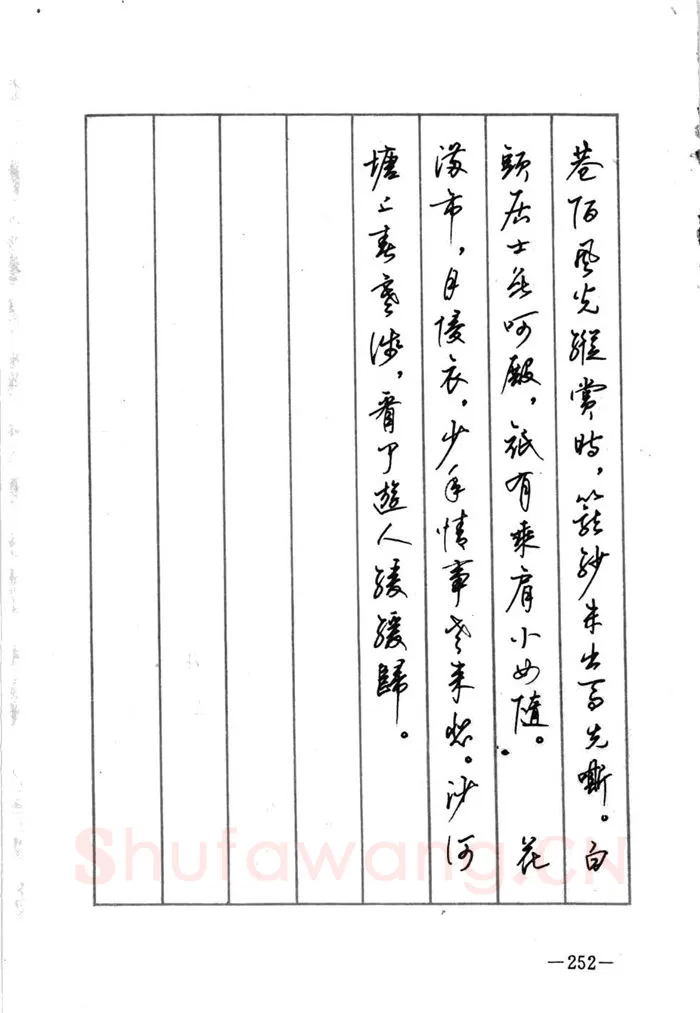 巷陌風光縱賞時，籠紗未出馬先嘶。白
頭居士無呵殿，祇有乘肩小女隨。　花
滿市，月侵衣。少年情事老來悲。沙河
塘上春寒淺，看了遊人緩緩歸。
—252—
Shufawang.CN